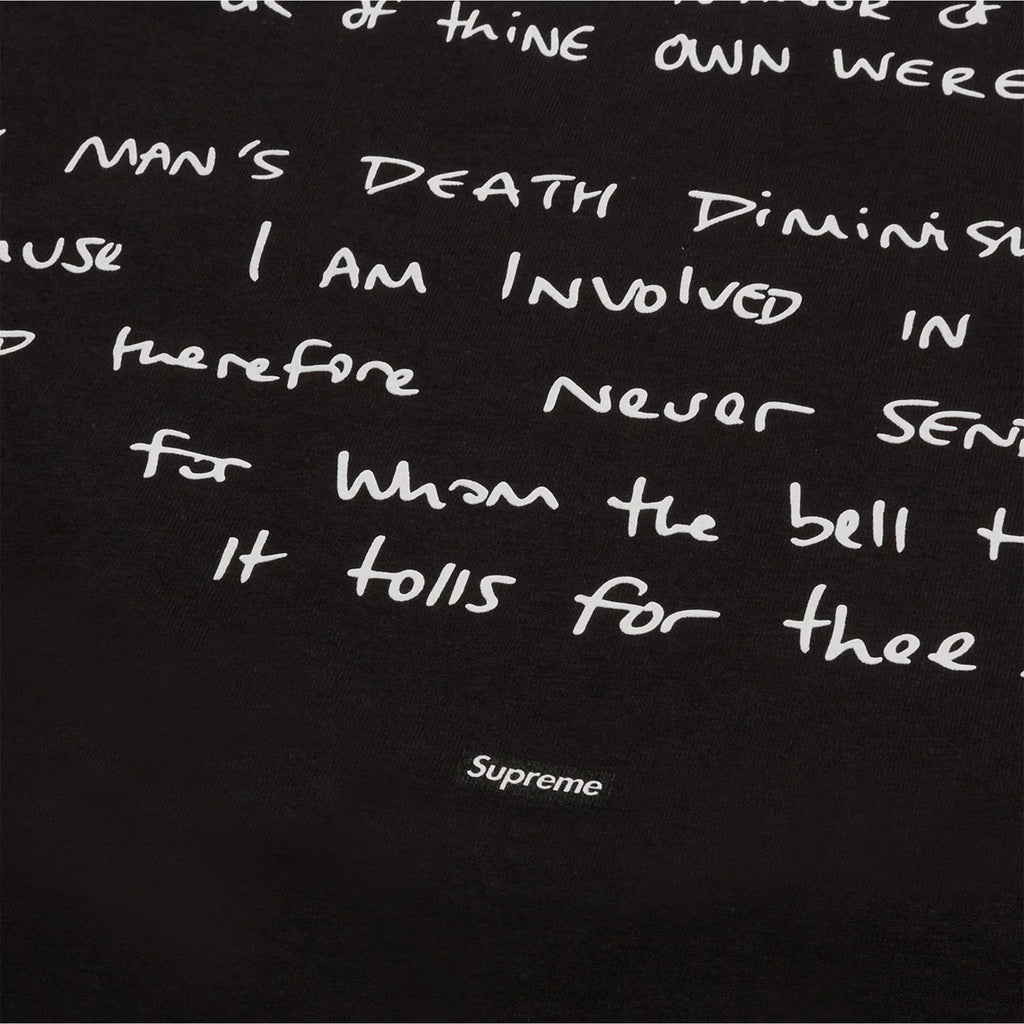 OR of thiNE OWN WERE
MAN'S DEATH DiMiNiSh
AUSE I AM INVOLVED IN
therefore Never SEND
for Whom the bell t
It tolls for thee
Supreme